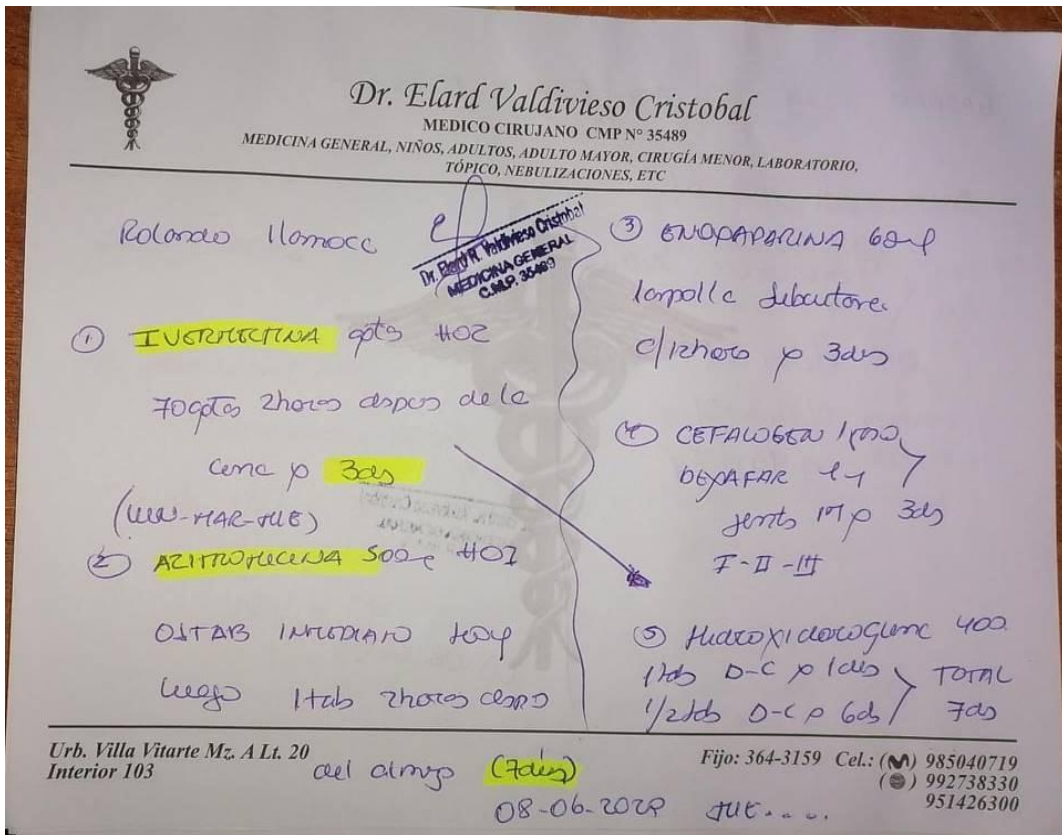 Dr. Elard Valdivieso Cristobal
MEDICO CIRUJANO CMP N° 35489
MEDICINA GENERAL, NIÑOS, ADULTOS, ADULTO MAYOR, CIRUGÍA MENOR, LABORATORIO,
TÓPICO, NEBULIZACIONES, ETC
Rolando llamocc
Dr. Elard R. Valdivieso Cristobal
MEDICINA GENERAL
C.M.P. 35489
① IVERMECTINA gots #02
70gots 2horas despus de la
cena x 3ds
② AZITROMICINA 500 #07
INMEDIATO HOY
luego 1tab 2horas
del almzo (7días)
③ ENOXAPARINA 60
1ampolla subcutanea
c/12horas x 3ds
④ CEFALOGEN
DEXAFAR
juntos IM x 3ds
I-II-III
⑤ Hidroxicloroquina 400
1tab D-C x 1ds
1/2tab D-C x 6ds
TOTAL
7ds
Urb. Villa Vitarte Mz. A Lt. 20
Interior 103
08-06-
Fijo: 364-3159 Cel.: 985040719
992738330
951426300